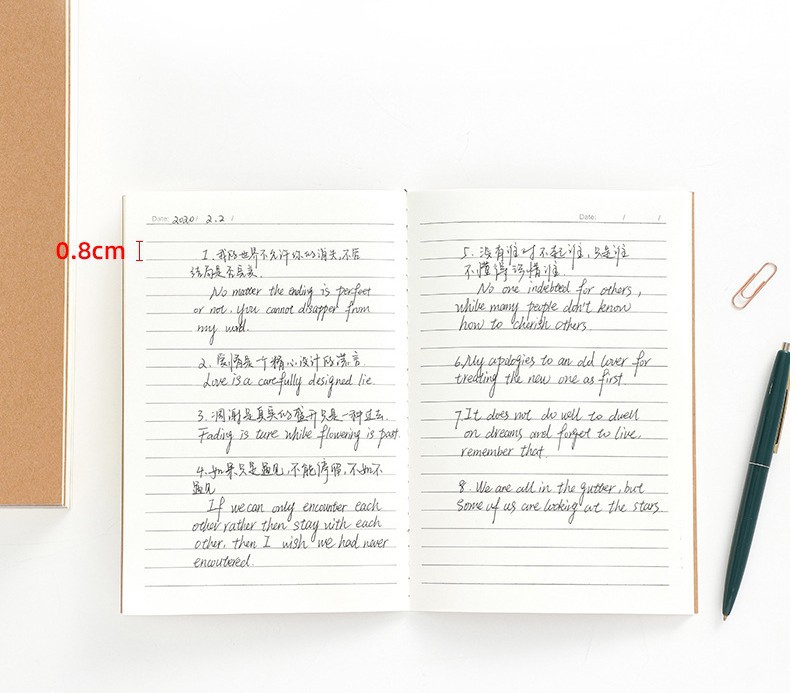 Date: 2020 / 2.2 /
0.8cm
1. 我的世界不允许你的消失,不管
结局是否完美.
No matter the ending is perfect
or not, you cannot disapper from
my world.
2. 爱情是一个精心设计的谎言.
Love is a carefully designed lie.
3. 凋谢是真实的盛开只是一种过去.
Fading is ture while flowering is past.
4. 如果只是遇见,不能停留,不如不
遇见
If we can only encounter each
other rather then stay with each
other, then I wish we had never
encoutered.
Date: / /
5. 没有谁对不起谁,只是谁
不懂得珍惜谁.
No one indebted for others,
while many people don't know
how to cherish others.
6. My apologies to an old lover for
treating the new one as first.
7 It does not do well to dwell
on dreams and forget to live,
remember that.
8. We are all in the gutter, but
some of us are looking at the stars.